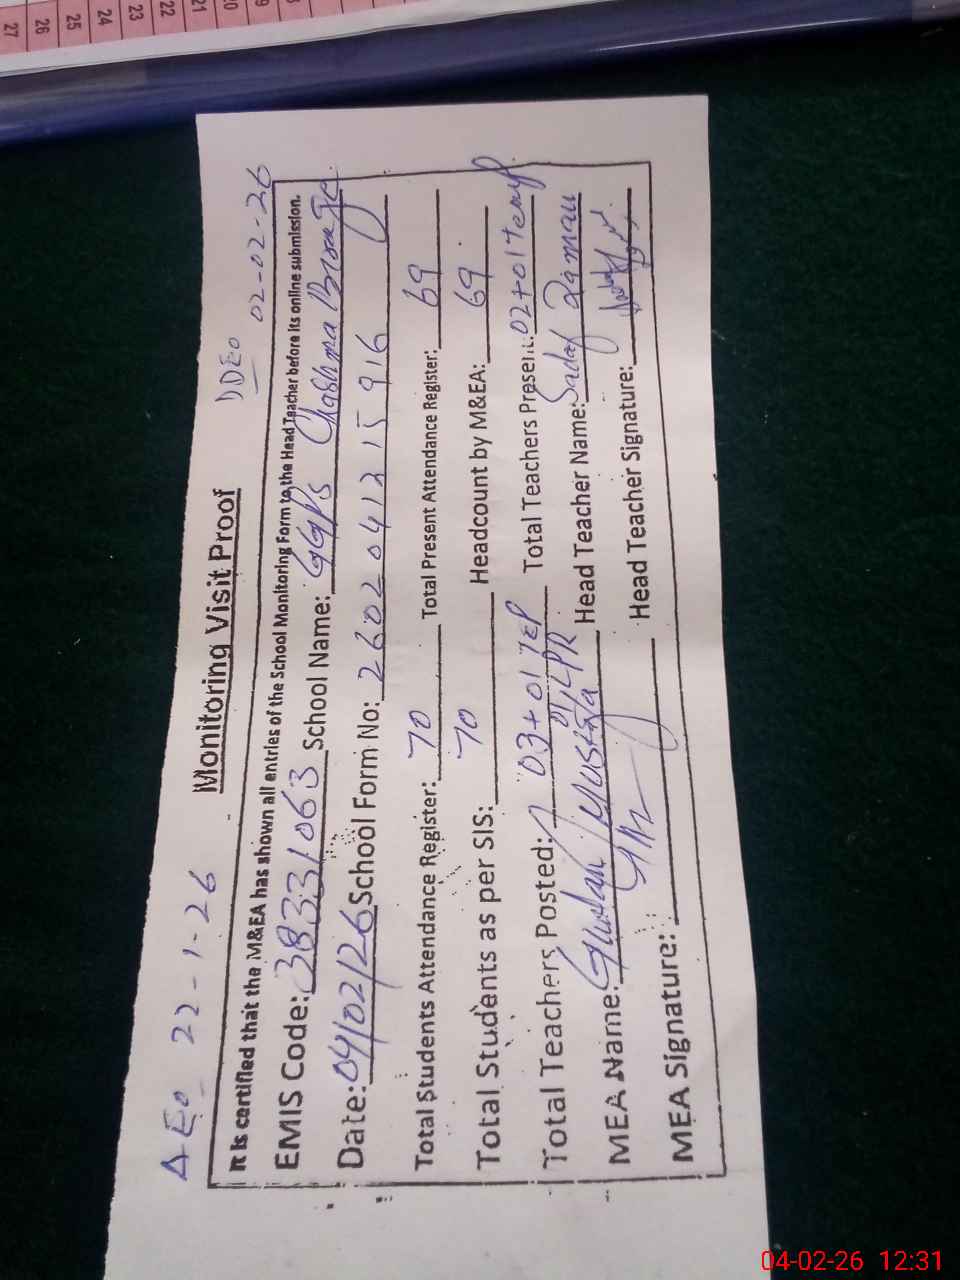 27 26 25 24 23 22 21 20
AEO 22-1-26
DDEO
02-02-26
Monitoring Visit Proof
It is certified that the M&EA has shown all entries of the School Monitoring Form to the Head Teacher before its online submission.
EMIS Code: 38331063 School Name: GGPS Chashma
Date: 04/02/26 School Form No: 2602041215916
Total Students Attendance Register: 70 Total Present Attendance Register: 69
Total Students as per SIS: 70 Headcount by M&EA: 69
Total Teachers Posted: 03+01 TEP Total Teachers Present: 02+01 temp
01 LPR
MEA Name: Ghulam Mustafa Head Teacher Name: Sadaf Zaman
MEA Signature: Head Teacher Signature:
04-02-26 12:31